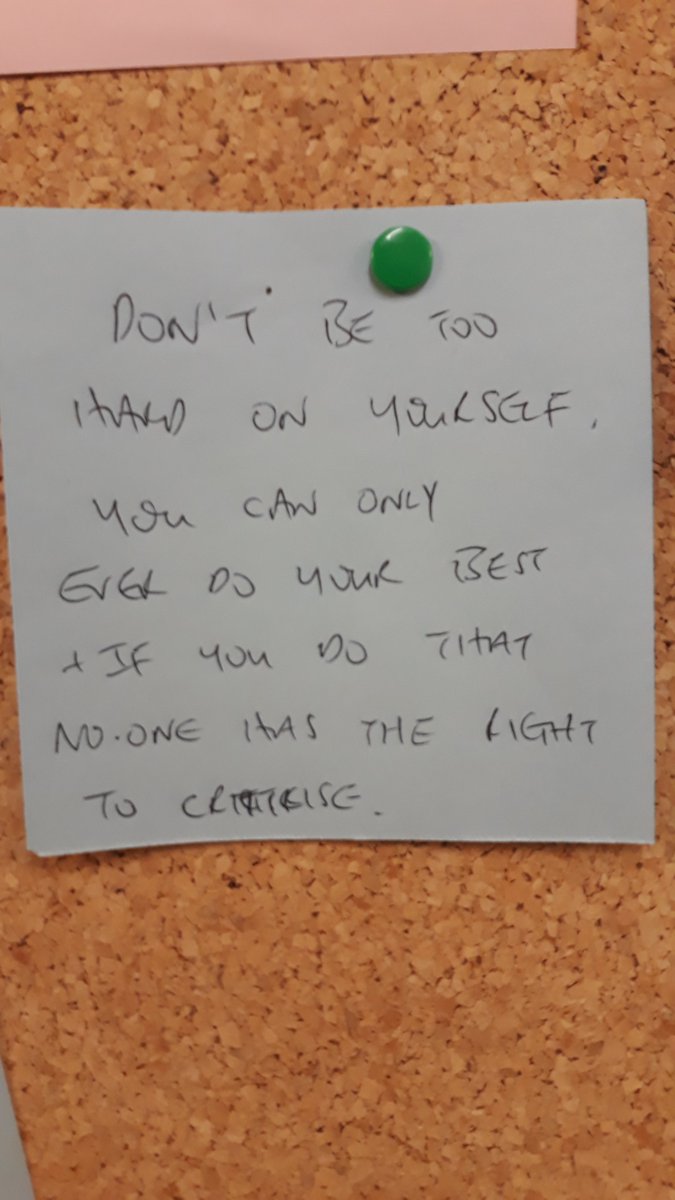 DON'T BE TOO
HARD ON YOURSELF.
YOU CAN ONLY
EVER DO YOUR BEST
+ IF YOU DO THAT
NO.ONE HAS THE RIGHT
TO CRITICISE.